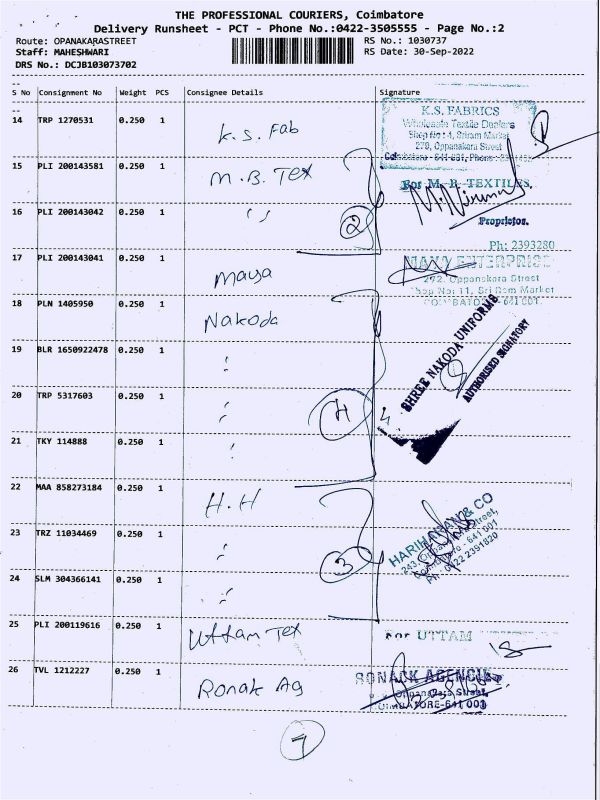 THE PROFESSIONAL COURIERS, Coimbatore
Delivery Runsheet - PCT - Phone No.:0422-3505555 - Page No.:2
Route: OPANAKARASTREET
RS No.: 1030737
Staff: MAHESHWARI
RS Date: 30-Sep-2022
DRS No.: DCJB103073702
S No Consignment No Weight PCS Consignee Details Signature
14 TRP 1270531 0.250 1 K.S. Fab
K.S. FABRICS
Wholesale Textile Dealers
Shop No : 4, Sriram Market
279, Oppanakara Street
Coimbatore - 641 001, Phone :
15 PLI 200143581 0.250 1 M.B. Tex
For M. B. TEXTILES,
16 PLI 200143042 0.250 1 " 2
Proprietor.
Ph: 2393280
17 PLI 200143041 0.250 1 Maya
MAYA ENTERPRISE
292, Oppanakara Street
Shop No: 11, Sri Ram Market
COIMBATORE - 641 001.
18 PLN 1405950 0.250 1 Nakoda
SHREE NAKODA UNIFORMS
AUTHORISED SIGNATORY
19 BLR 1650922478 0.250 1 "
20 TRP 5317603 0.250 1 " 4
21 TKY 114888 0.250 1 "
22 MAA 858273184 0.250 1 H.H
23 TRZ 11034469 0.250 1 " 3
& CO
243, Street,
Coimbatore - 641 001
Ph : 0422 2391820
24 SLM 304366141 0.250 1 "
25 PLI 200119616 0.250 1 Uttam Tex
For UTTAM
26 TVL 1212227 0.250 1 Ronak Ag
RONACK AGENCIE
Oppanakara Street,
COIMBATORE-641 001
7